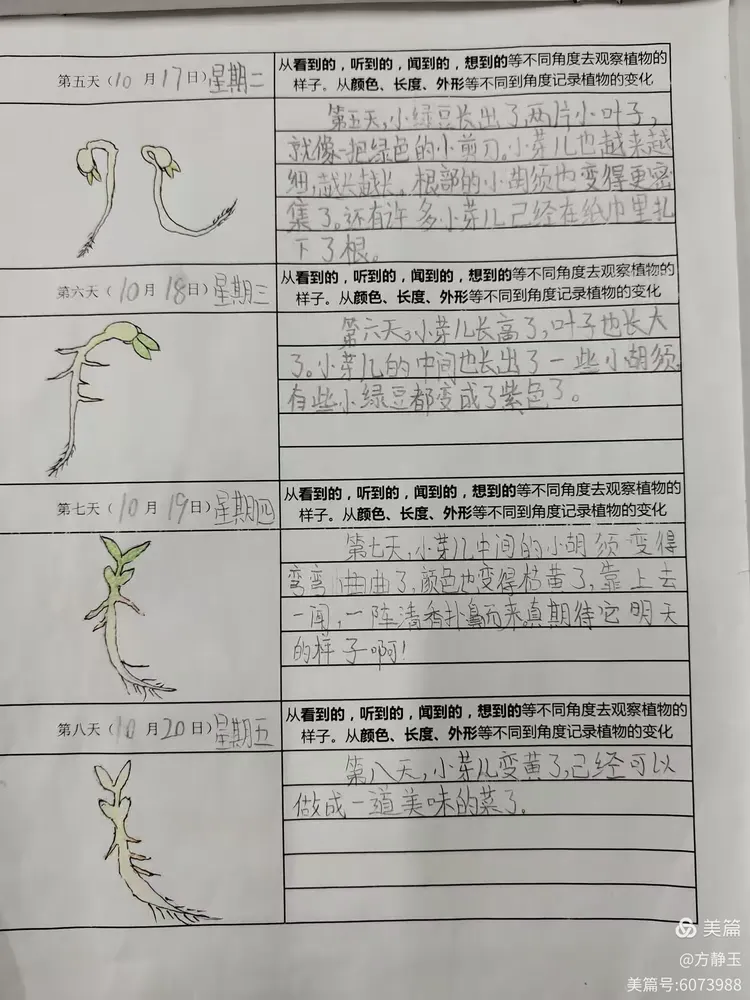 第五天（10月17日）星期二
从看到的，听到的，闻到的，想到的等不同角度去观察植物的
样子。从颜色、长度、外形等不同到角度记录植物的变化
第五天，小绿豆长出了两片小叶子，
就像一把绿色的小剪刀。小芽儿也越来越
细，越长越长，根部的小胡须也变得更密
集了。还有许多小芽儿已经在纸巾里扎
下了根。
第六天（10月18日）星期三
从看到的，听到的，闻到的，想到的等不同角度去观察植物的
样子。从颜色、长度、外形等不同到角度记录植物的变化
第六天，小芽儿长高了，叶子也长大
了。小芽儿的中间也长出了一些小胡须
有些小绿豆都变成了紫色了。
第七天（10月19日）星期四
从看到的，听到的，闻到的，想到的等不同角度去观察植物的
样子。从颜色、长度、外形等不同到角度记录植物的变化
第七天，小芽儿中间的小胡须变得
弯弯曲曲了，颜色也变得桔黄了，靠上去
一闻，一阵清香扑鼻而来。真期待它明天
的样子啊！
第八天（10月20日）星期五
从看到的，听到的，闻到的，想到的等不同角度去观察植物的
样子。从颜色、长度、外形等不同到角度记录植物的变化
第八天，小芽儿变黄了，已经可以
做成一道美味的菜了。
美篇
@方静玉
美篇号:6073988